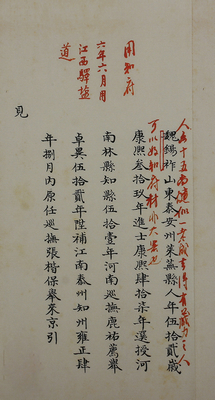 人去得五分健似冬成[...]
可以好知府材亦大器也
魏錫祚山東泰安州萊蕪縣人年伍拾貳歲
康熙叁拾玖年進士康熙肆拾柒年選授河
南林縣知縣伍拾壹年河南巡撫鹿祐薦舉
卓異伍拾貳年陞補江南泰州知州雍正肆
年捌月內原任巡撫張楷保舉來京引
見
用知府
六年六月用
江西驛塩
道